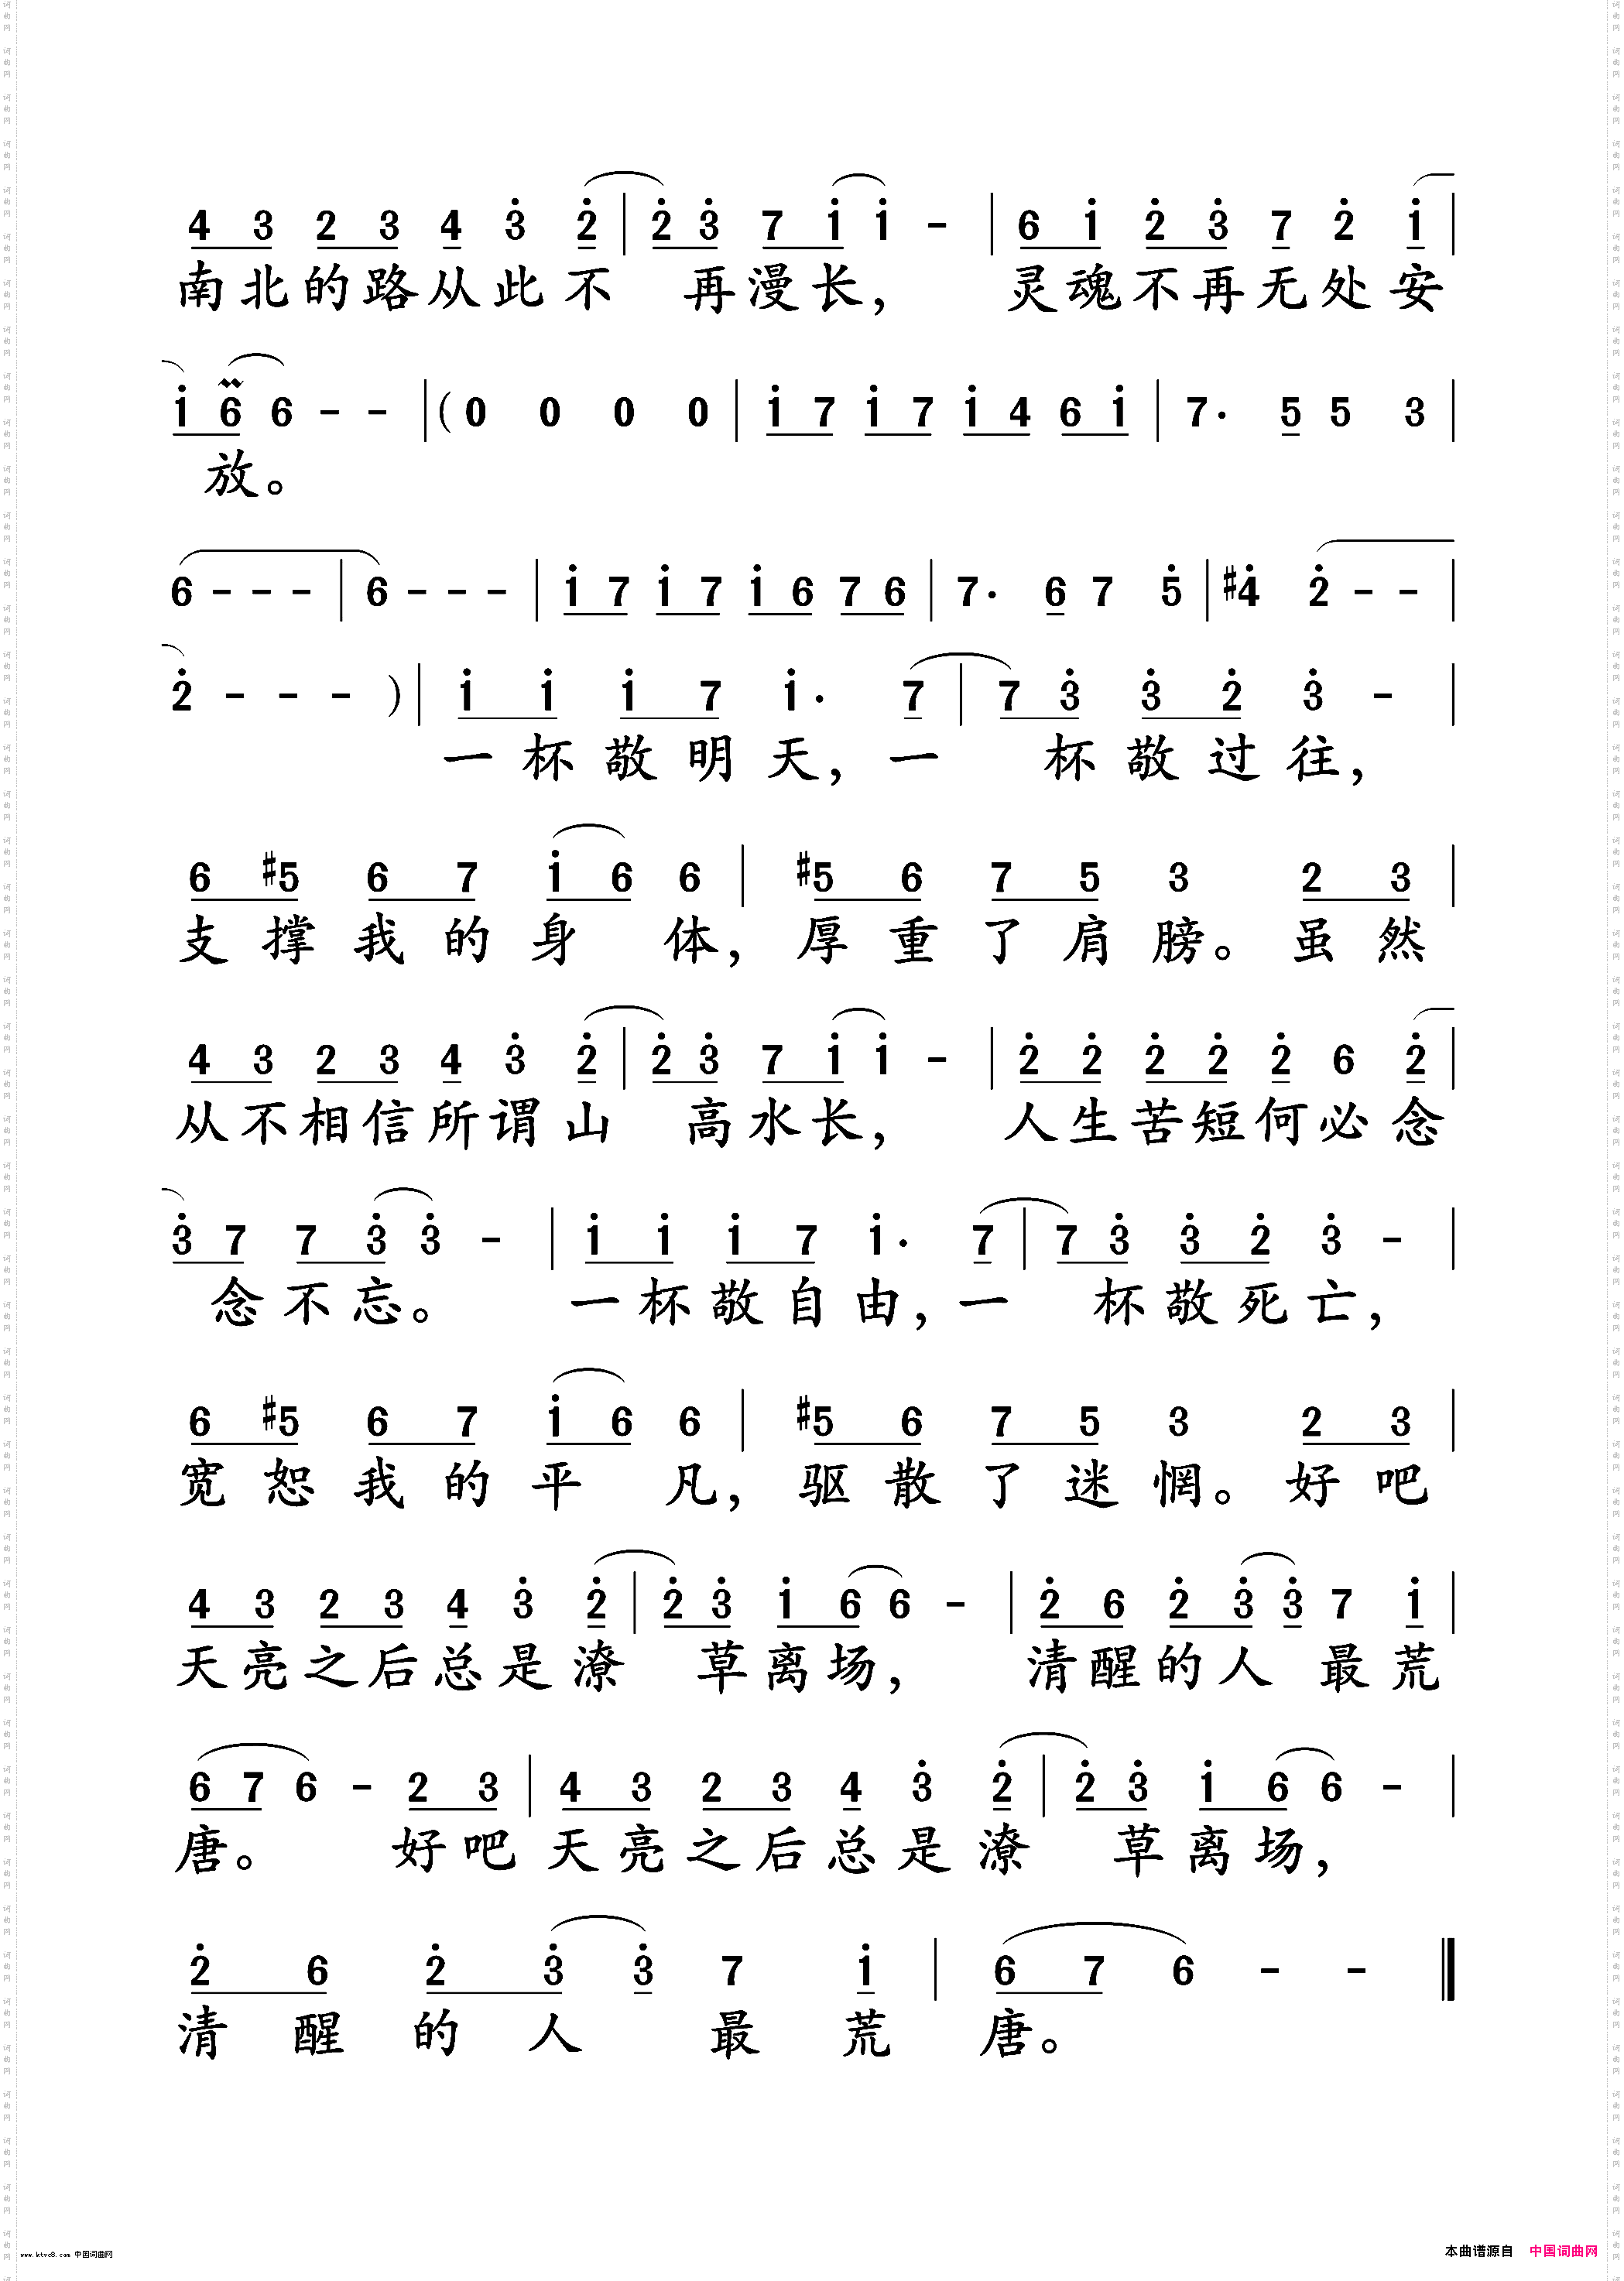 4 3 2 3 4 3̇ 2̇ | 2̇ 3̇ 7 1̇ 1̇ - | 6 1̇ 2̇ 3̇ 7 2̇ 1̇ |
南北的路从此不 再漫长， 灵魂不再无处安
1̇ 6 6 - - | ( 0 0 0 0 | 1̇ 7 1̇ 7 1̇ 4 6 1̇ | 7· 5 5 3 |
放。
6 - - - | 6 - - - | 1̇ 7 1̇ 7 1̇ 6 7 6 | 7· 6 7 5̇ | #4̇ 2̇ - - |
2̇ - - - ) | 1̇ 1̇ 1̇ 7 1̇· 7 | 7 3̇ 3̇ 2̇ 3̇ - |
一杯敬明天，一 杯敬过往，
6 #5 6 7 1̇ 6 6 | #5 6 7 5 3 2 3 |
支撑我的身 体，厚重了肩膀。虽然
4 3 2 3 4 3̇ 2̇ | 2̇ 3̇ 7 1̇ 1̇ - | 2̇ 2̇ 2̇ 2̇ 2̇ 6 2̇ |
从不相信所谓山 高水长， 人生苦短何必念
3̇ 7 7 3̇ 3̇ - | 1̇ 1̇ 1̇ 7 1̇· 7 | 7 3̇ 3̇ 2̇ 3̇ - |
念不忘。 一杯敬自由，一 杯敬死亡，
6 #5 6 7 1̇ 6 6 | #5 6 7 5 3 2 3 |
宽恕我的平 凡，驱散了迷惘。好吧
4 3 2 3 4 3̇ 2̇ | 2̇ 3̇ 1̇ 6 6 - | 2̇ 6 2̇ 3̇ 3̇ 7 1̇ |
天亮之后总是潦 草离场， 清醒的人 最荒
6 7 6 - 2 3 | 4 3 2 3 4 3̇ 2̇ | 2̇ 3̇ 1̇ 6 6 - |
唐。 好吧天亮之后总是潦 草离场，
2̇ 6 2̇ 3̇ 3̇ 7 1̇ | 6 7 6 - - ‖
清醒的人 最荒唐。
www.ktvc8.com 中国词曲网
本曲谱源自 中国词曲网